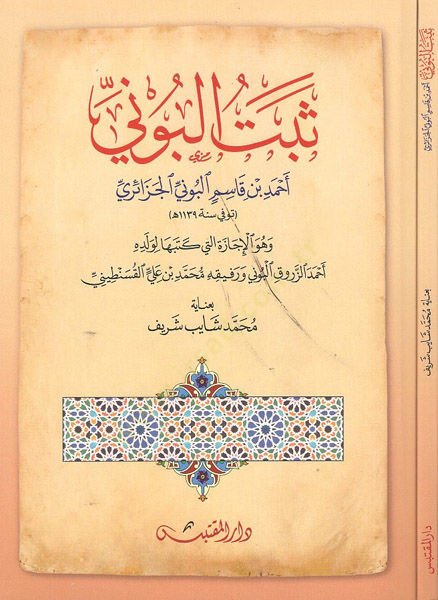 ثَبَتُ البُونيِّ
أَحْمَد بْن قَاسِمٍ البُونيِّ الجَزَائِريِّ
(توفي سنة ١١٣٩هـ)
وَهُوَ الإِجَازَة التي كَتَبَهَا لِوَلَدِهِ
أَحْمَد الزَّرُوق البُوني وَرَفِيقِهِ مُحَمَّد بْن عَلِيٍّ القُسَنْطِينيِّ
بعناية
مُحَمَّد شَايب شَريف
دار المقتبس
ثَبَتُ البُونيِّ
أحمد بن قاسم البوني الجزائري
بعناية مُحَمَّد شَايب شَريف
دار المقتبس